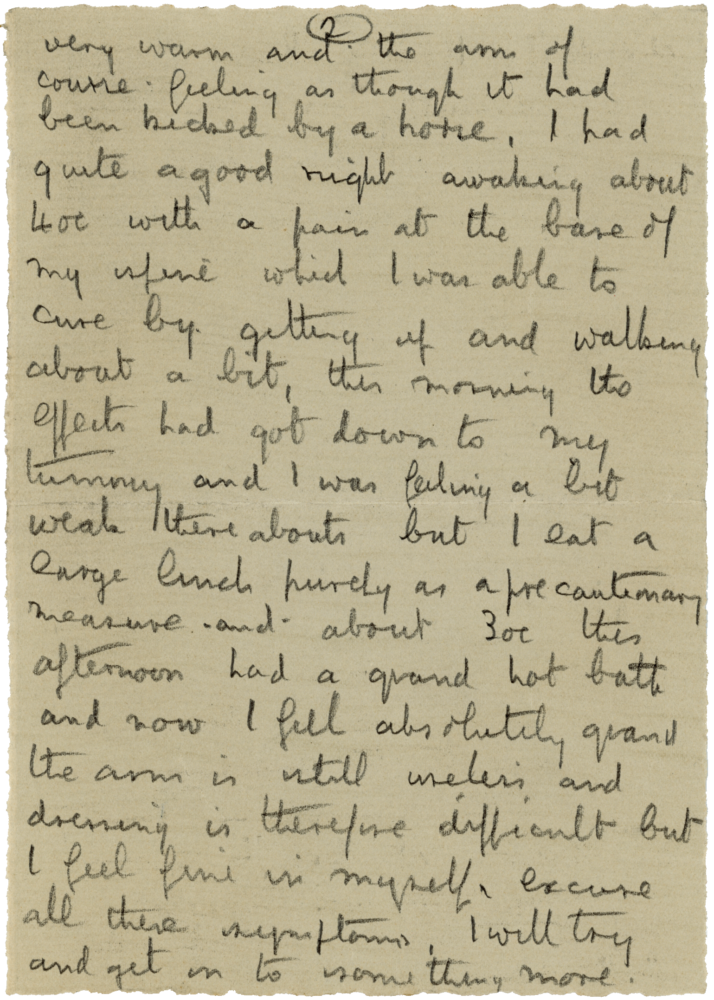 2
very warm and the arm of
course feeling as though it had
been kicked by a horse, I had
quite a good night awaking about
4oc with a pain at the base of
my spine which I was able to
cure by getting up and walking
about a bit, this morning the
effects had got down to my
tummy and I was feeling a bit
weak there abouts but I eat a
large lunch purely as a precautionary
measure and about 3oc this
afternoon had a grand hot bath
and now I feel absolutely grand
the arm is still useless and
dressing is therefore difficult but
I feel fine in myself, excuse
all these symptoms, I will try
and get on to something more.